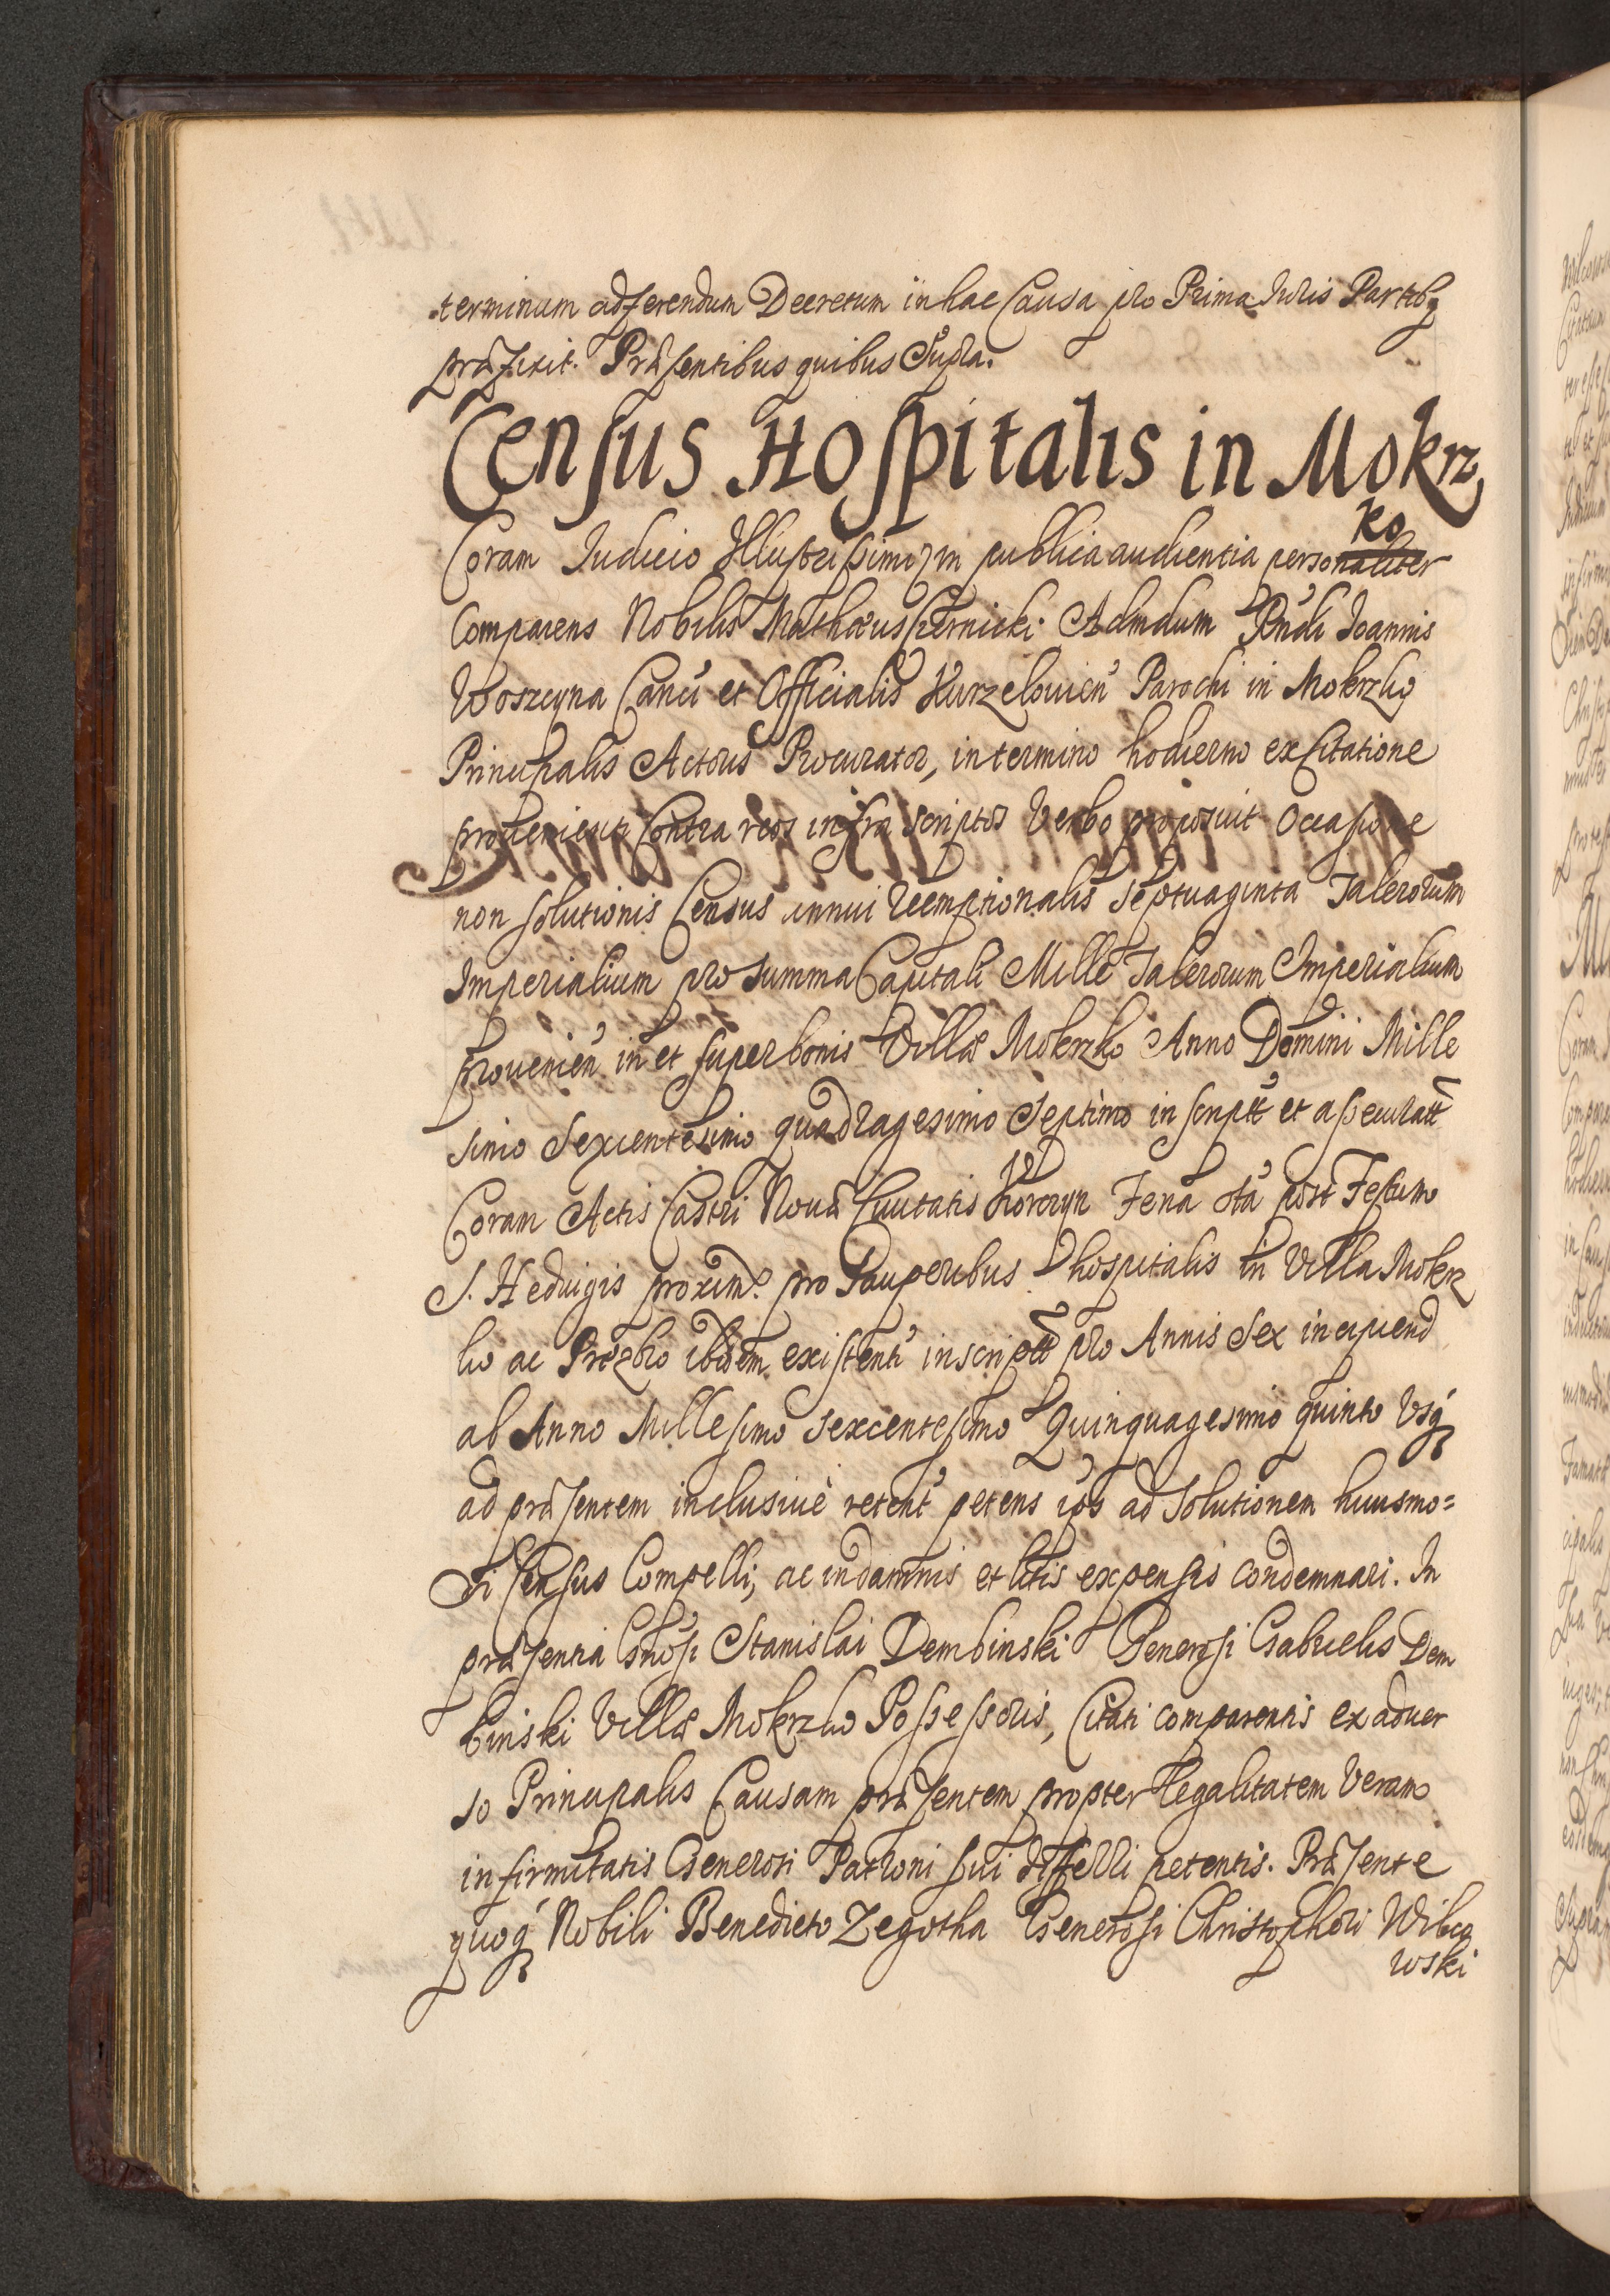 terminum adferendum Decretum in hac Causa pro Prima Juris Partibq
præfixit. Præsentibus quibus Supra.
Census Hospitalis in Mokrz
ko
Coram Judicio Illustrissimo in publica audientia personaliter
Comparens Nobilis Matthæus Admdum Rndi Joannis
Woszcyna Canci et Officialis Kurzelouien Parochi in Mokrzko
Principalis Actoris Procurator, in termino hodierno ex Citatione
provenienti Contra reos infra scriptos Verbo proposuit Occasione
non solutionis Census annui reemptionalis Septuaginta Talerorum
Imperialium pro summa Capitali Mille Talerorum Imperialium
prouenien in et super bonis Villæ Mokrzko Anno Domini Mille
simo Sexcentesimo quadragesimo Septimo in scriptt et assecuratt
Coram Actis Castri Nouæ Ciuitatis Korczyn Feria 6ta post Festum
S. Hedvigis proxim. pro Pauperibus hospitalis in Villa Mokrz
ko ac Præbro ibidem existenti inscriptt pro Annis Sex incipiend
ab Anno Millesimo Sexcentesimo Quinquagesimo quinto Usq
ad præsentem inclusiuè retent petens ips ad Solutionem huiusmo=
di Census Compelli, ac in damnis et litis expensis condemnari. In
præsentia Gnosi Stanislai Dembinski Generosi Gabrielis Dem
binski Villæ Mokrzko Possessoris, Citati comparentis ex aduer
so Principalis Causam præsentem propter legalitatem Veram
infirmitatis Generosi Patroni sui differri petentis. Præsente
quoq Nobili Benedicto Zegotha Generosi Christophori Wilco
wski